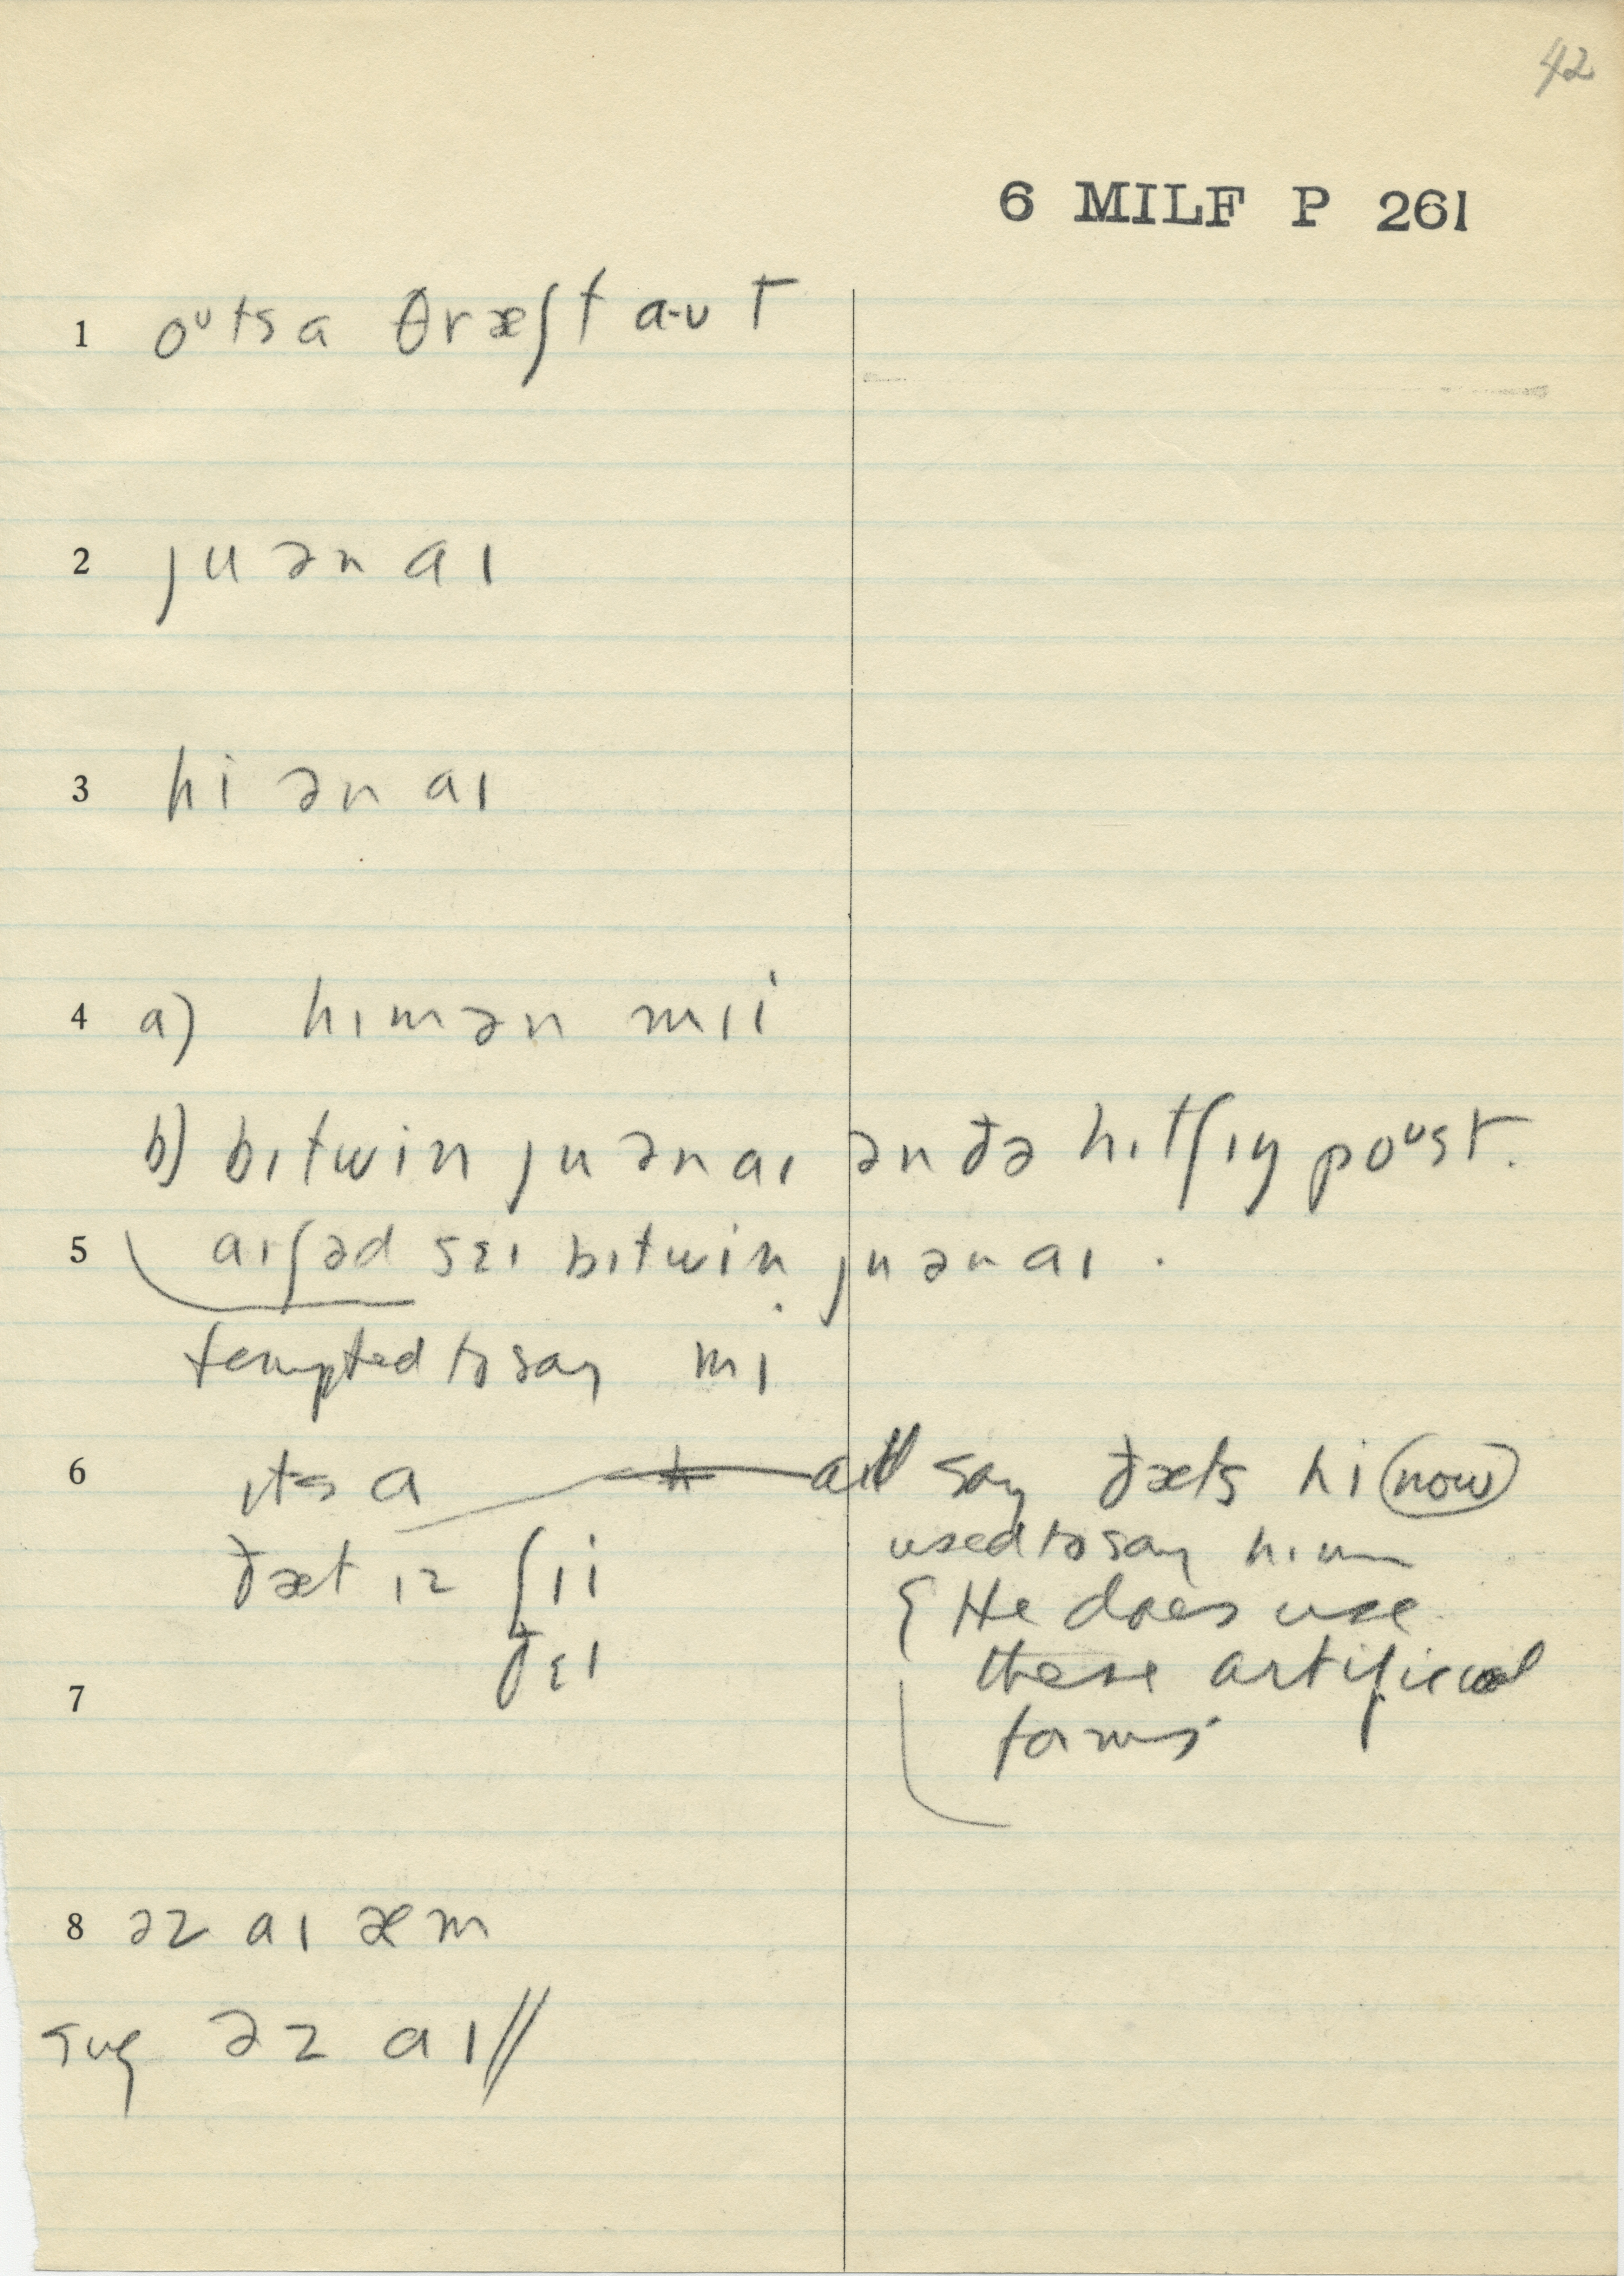 42
6 MILF P 261
1 oᵘts a θræʃt a·ʊt
2 ju ən aɪ
3 hi ən aɪ
4 a) hɪm ən mɪi
b) bɪtwin ju ən aɪ ən ðə hɪtʃɪŋ poᵘst.
5 aɪ ʃəd sɛɪ bɪtwin ju ən aɪ.
tempted to say mɪ
6 ɪts aɪ
aɪll say ðæts hi (now)
ðæt ɪz ʃɪi
used to say hɪm
ðɛɪ
{ He does use
7
these artificial
forms
8 əz aɪ æm
sug əz aɪ //